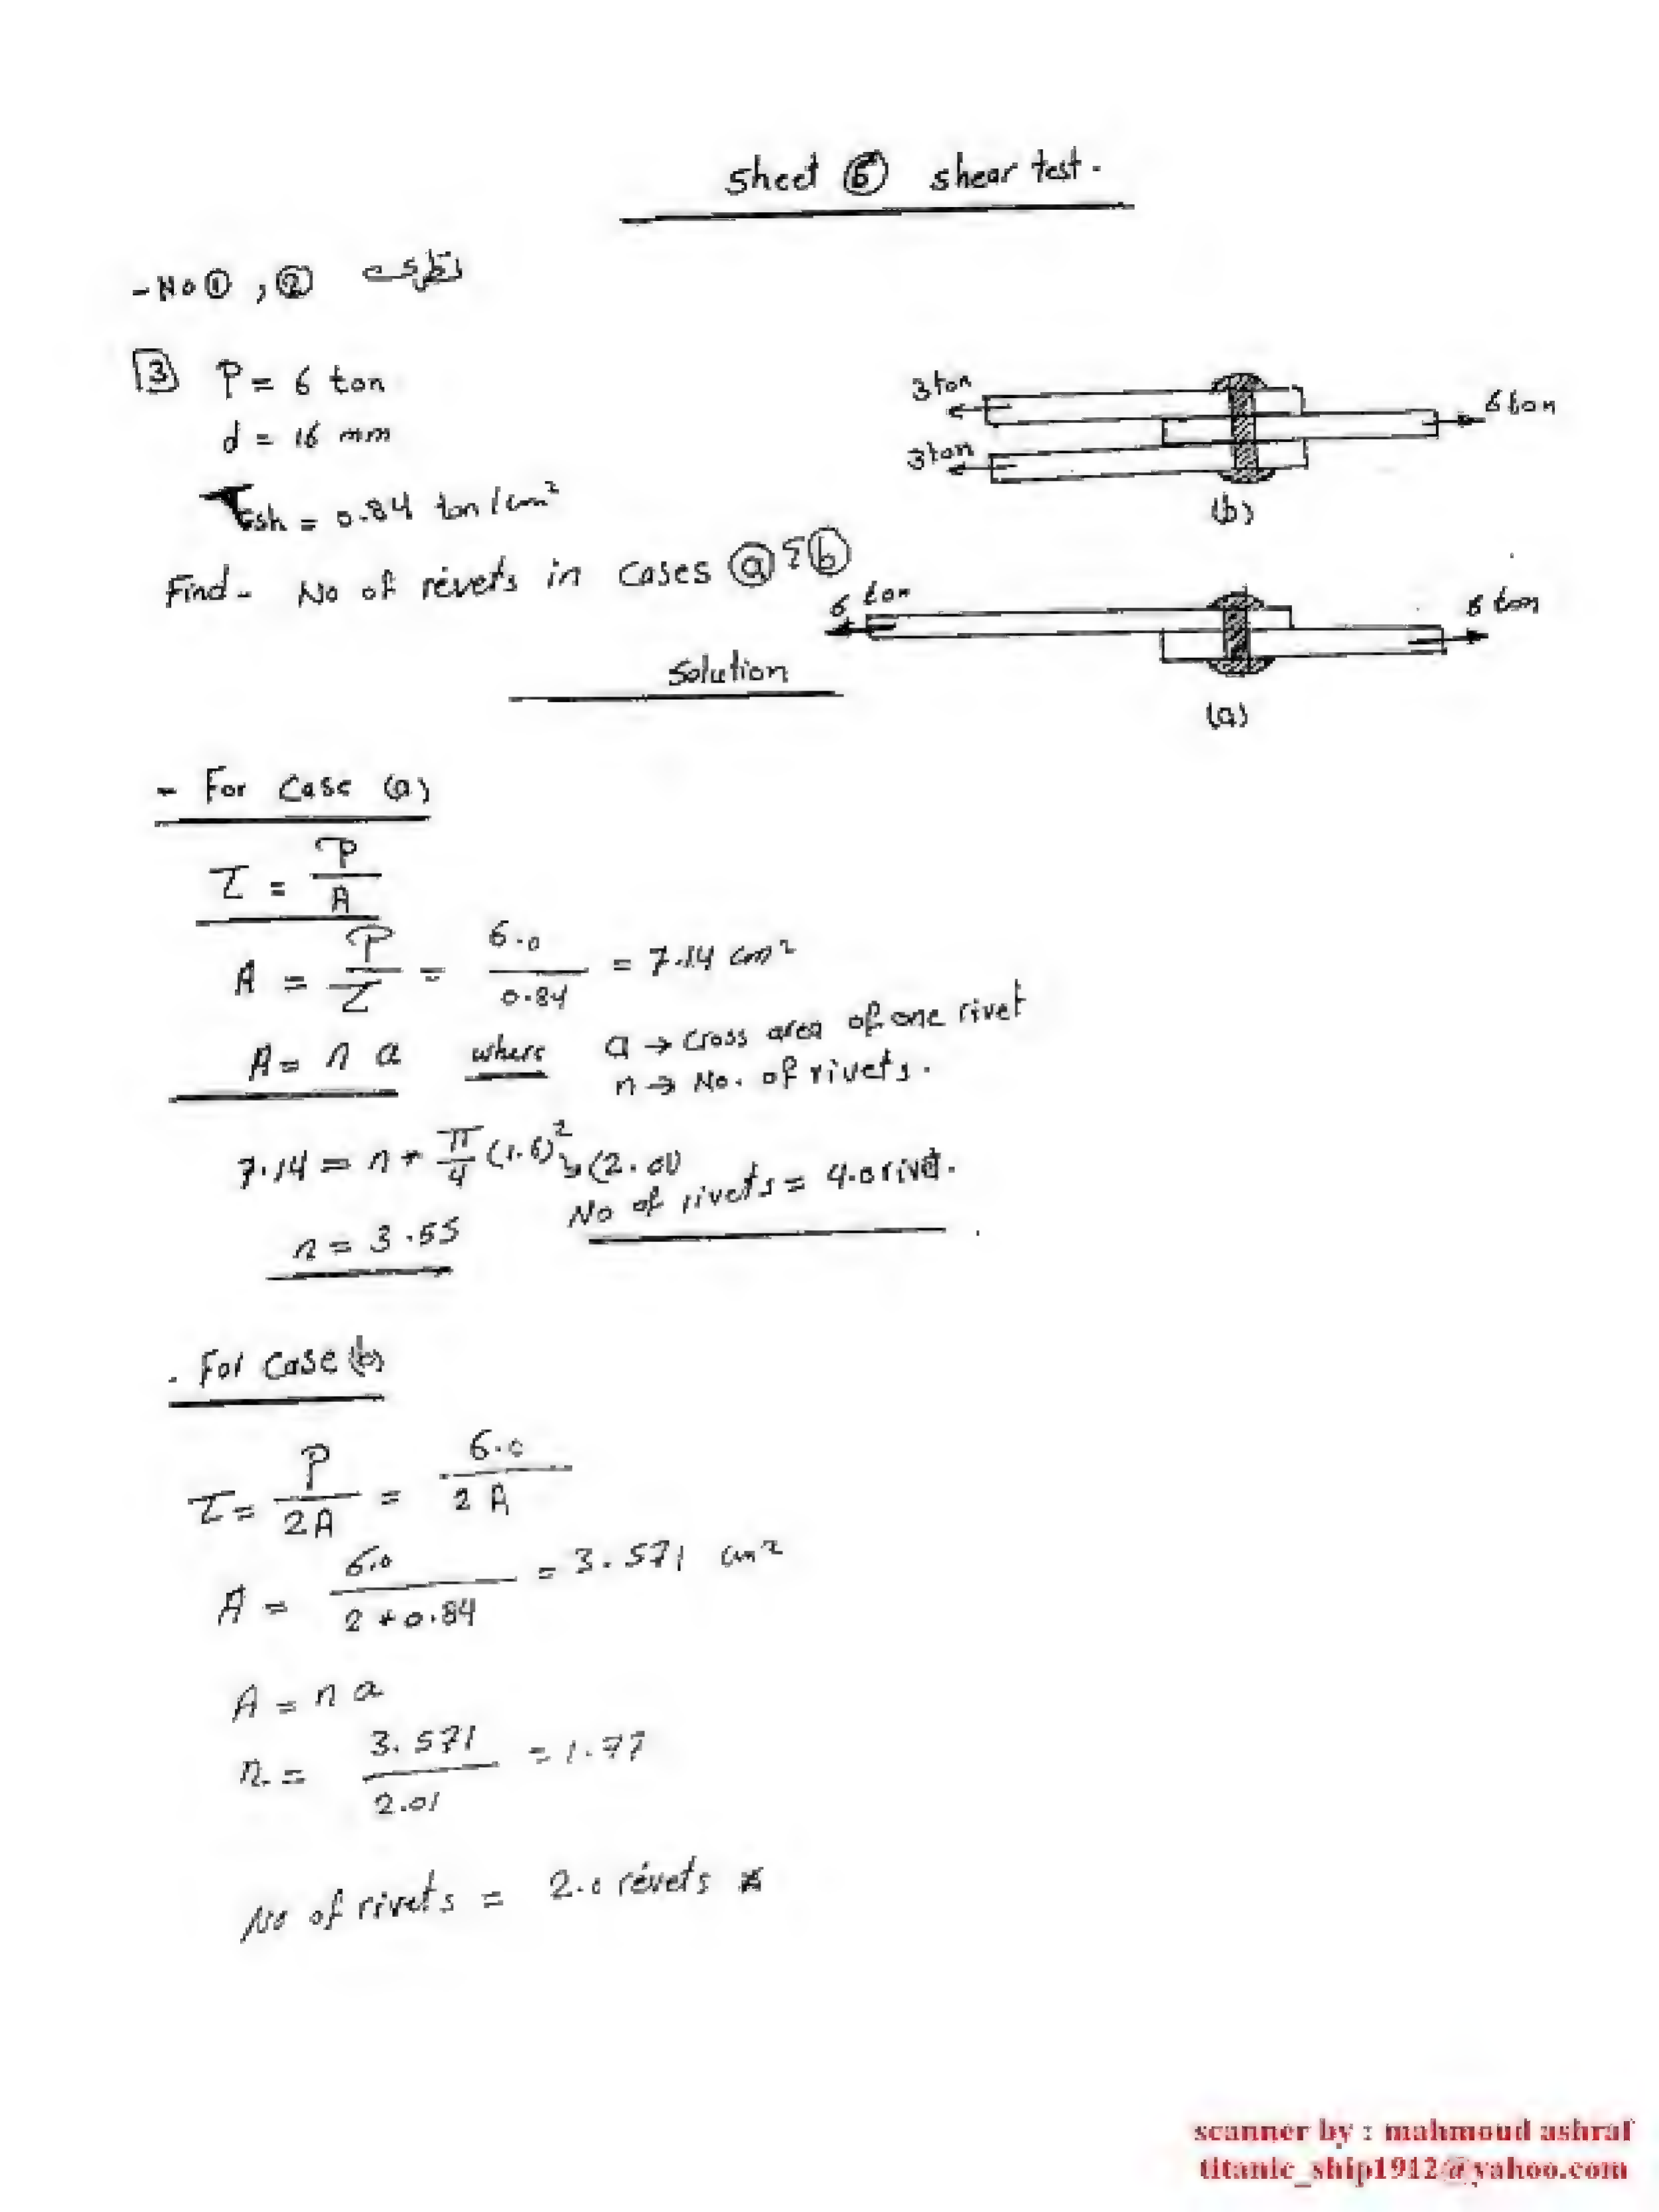 Sheet 6 shear test.
- No 1 , 2 نظرى
3 P = 6 ton
d = 16 mm
τsh = 0.84 ton/cm²
Find - No of rivets in cases a & b
3 ton
6 ton
3 ton
(b)
6 ton
6 ton
(a)
Solution
- For Case (a)
τ = P / A
A = P / τ = 6.0 / 0.84 = 7.14 cm²
A = n a where a → cross area of one rivet
n → No. of rivets.
7.14 = n * π/4 (1.6)² → (2.01)
n = 3.55 No of rivets = 4.0 rivet.
. For Case (b)
τ = P / 2A = 6.0 / 2 A
A = 6.0 / 2 * 0.84 = 3.571 cm²
A = n a
n = 3.571 / 2.01 = 1.77
No of rivets = 2.0 rivets *
scanner by : mahmoud ashraf
titanic_ship1912@yahoo.com